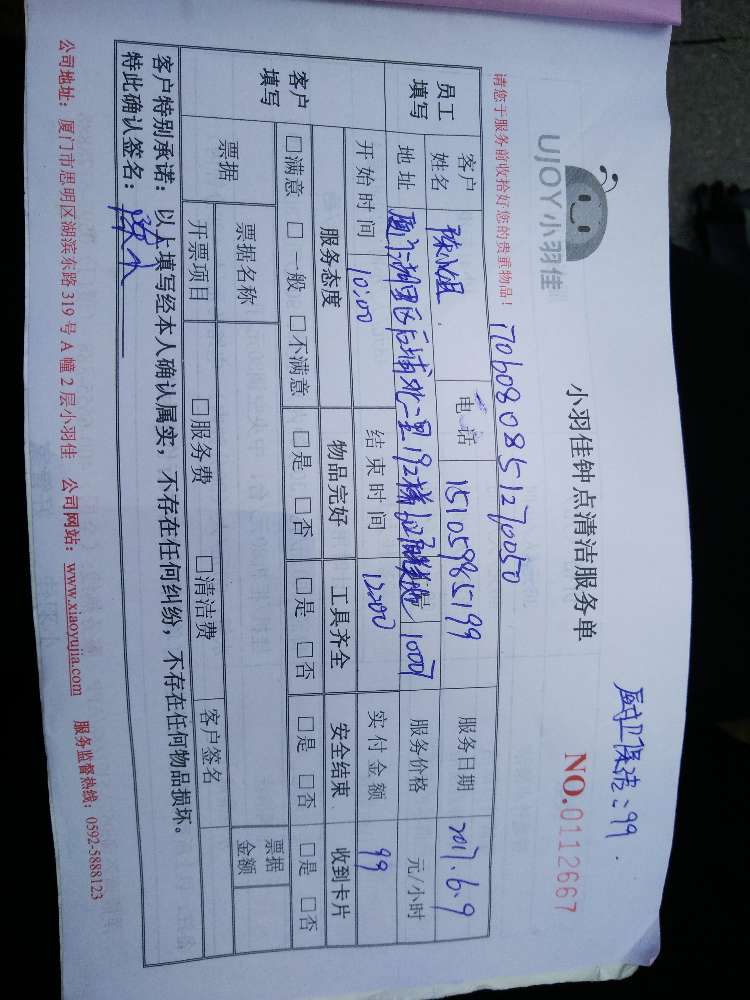 厨卫保洁:99.
UJOY小羽佳
小羽佳钟点清洁服务单
NO.0112667
请您于服务前收拾好您的贵重物品!
1706080851270050
员工填写 客户姓名 陈小姐 电话 15105985199 服务日期 2017.6.9
地址 厦门湖里区后埔北二里192栋 1007 服务价格 元/小时
开始时间 10:00 结束时间 12:00 实付金额 99
客户填写 服务态度 物品完好 工具齐全 安全结束 收到卡片
□满意 □一般 □不满意 □是 □否 □是 □否 □是 □否 □是 □否
票据 票据名称 票据金额
开票项目 □服务费 □清洁费 客户签名
客户特别承诺:以上填写经本人确认属实,不存在任何纠纷,不存在任何物品损坏。
特此确认签名:
公司地址:厦门市思明区湖滨东路319号A幢2层小羽佳 公司网站:www.xiaoyujia.com 服务监督热线:0592-5888123